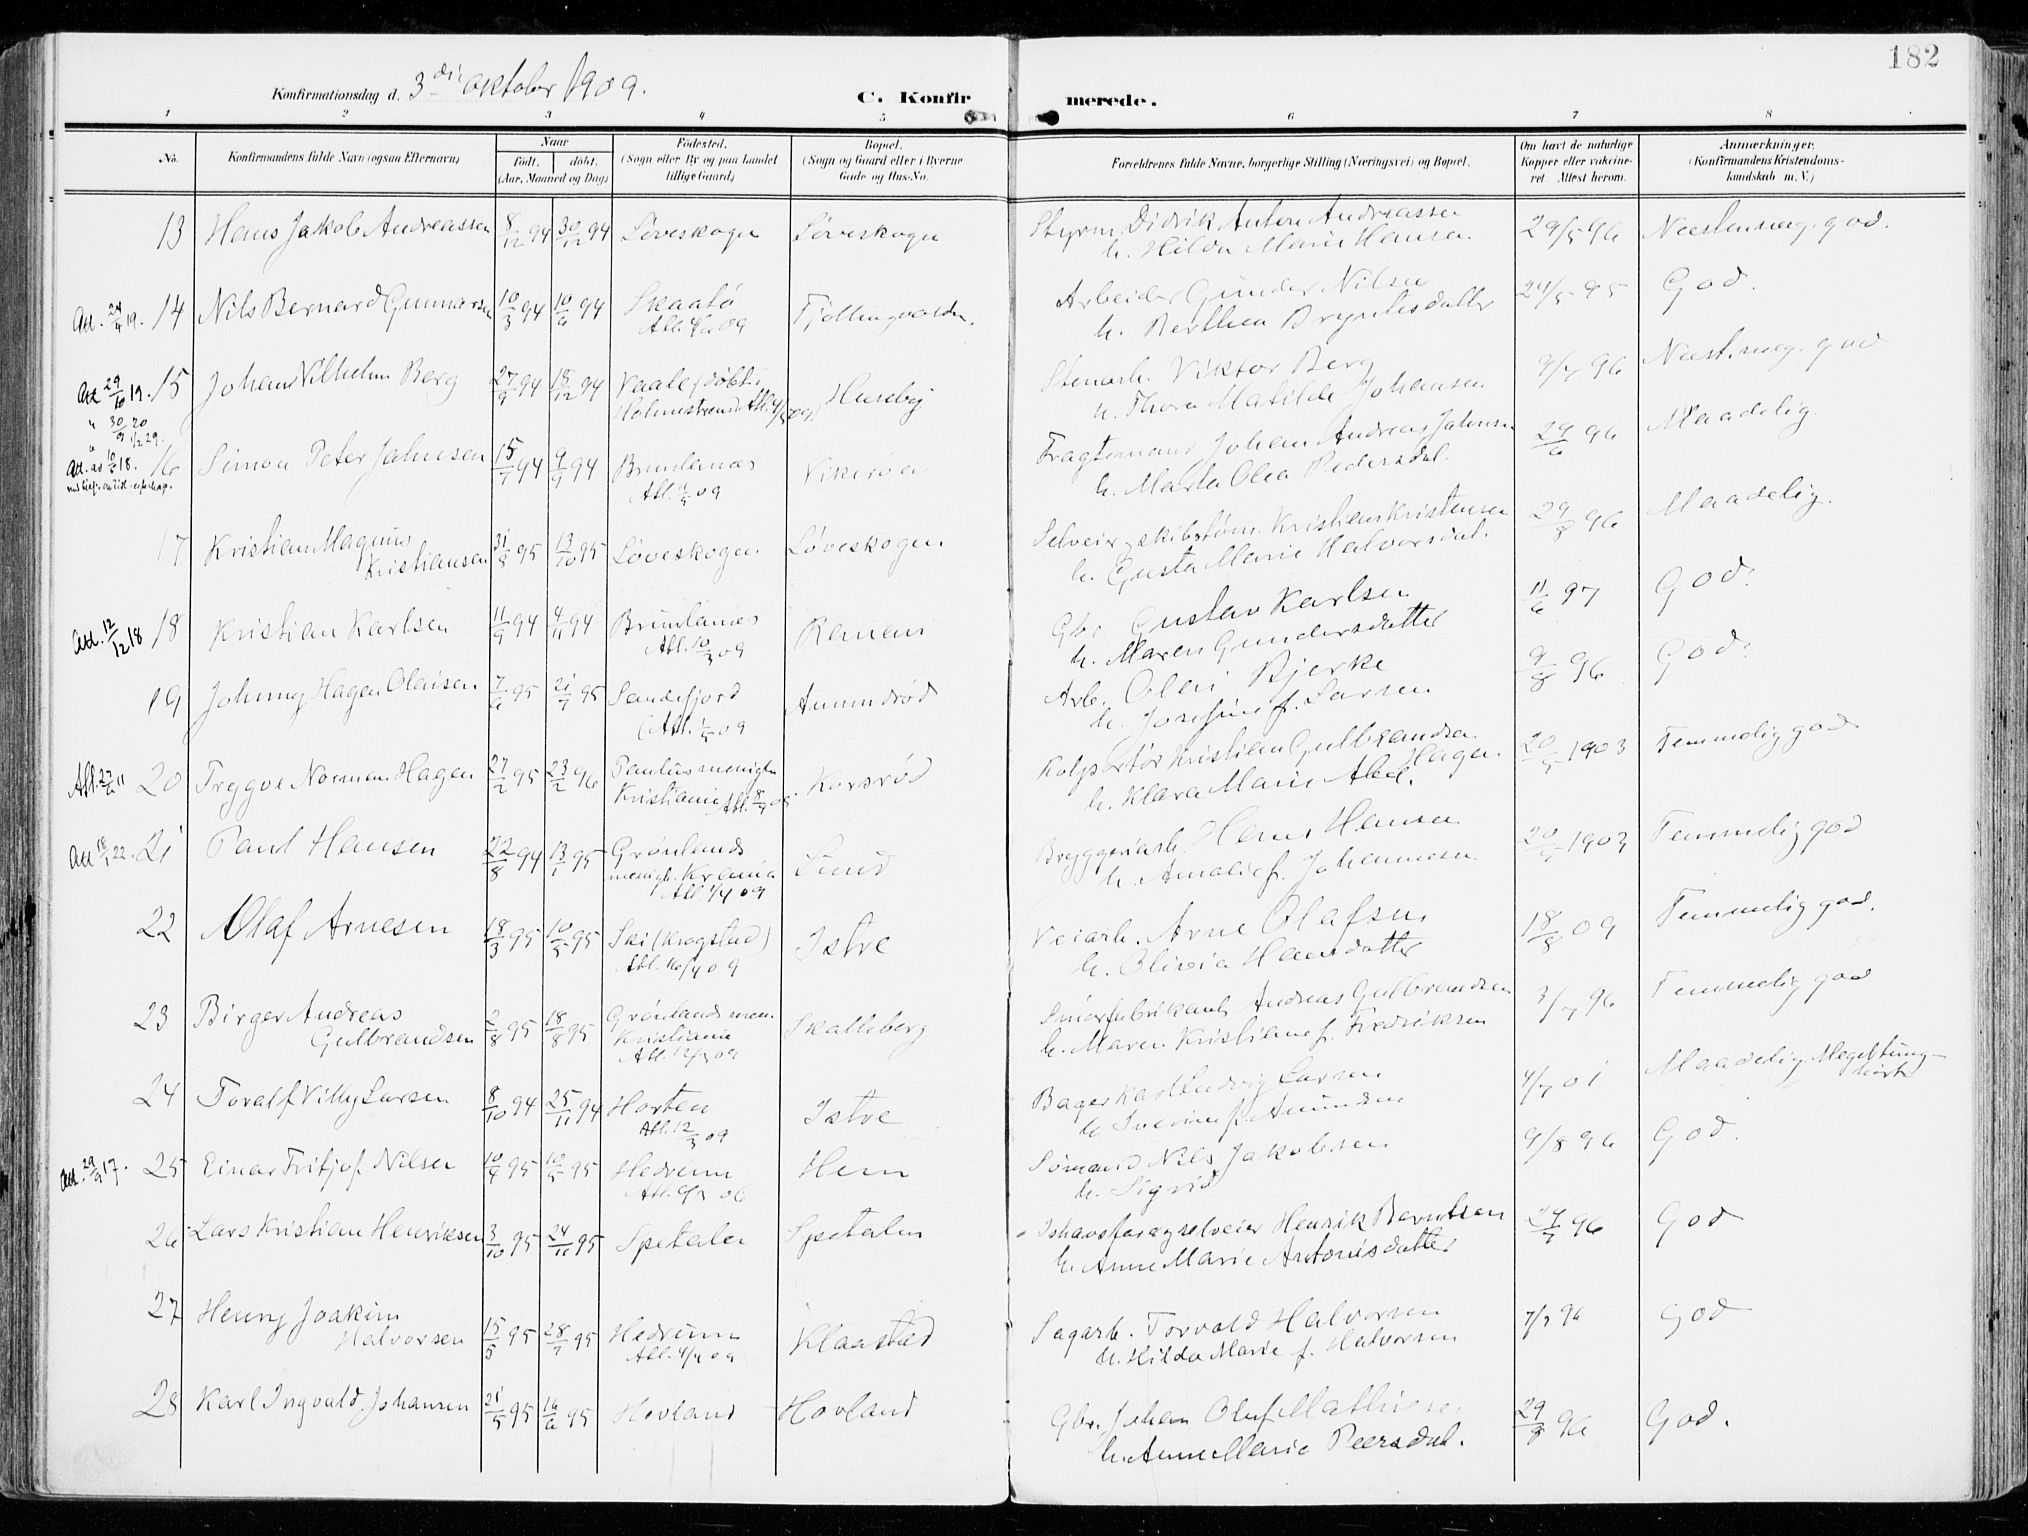 182
Konfirmationsdag d. 3die oktober 1909.
C. Konfirmerede.
1 2 3 4 5 6 7 8
No.
Konfirmandens fulde Navn (ogsaa Efternavn)
Naar
født. døbt.
(Aar, Maaned og Dag)
Fødested.
(Sogn eller By og paa Landet
tillige Gaard)
Bopæl.
(Sogn og Gaard eller i Byerne
Gade og Hus-No.
Forældrenes fulde Navne, borgerlige Stilling (Næringsvei) og Bopæl.
Om havt de naturlige
Kopper eller vakcine-
ret. Attest herom.
Anmærkninger.
(Konfirmandens Kristendoms-
kundskab m. V.)
13 Hans Jakob Andreassen 8/12 94 30/12 94 Løveskogen Løveskogen Styrm. Didrik Anton Andreassen 29/5 96 Næsten meg. god.
h. Hilda Marie Hansen
Att. 24/4 19. 14 Nils Bernard Gunnarsen 10/3 94 10/6 94 Skaatø Tjøllingvolden Arbeider Gunder Nilsen 24/5 95 God.
h. Berthea Brynhildsdatter
Att. 29/10 19. 15 Johan Vilhelm Berg 27/9 94 18/12 94 Vaale (døbt i Huseby Stenarb. Viktor Berg 9/7 96 Næst. meg. god
Holmestrand Att. h. Thora Matilde Johansen
" 30/9 20
" 1/2 29.
Att. 10/5 18. 16 Simon Peter Jahnsen 15/7 94 9/9 94 Brunlanæs Vikerøen Fragtemand Johan Andreas Jahnsen 29/6 96 Maadelig
Att. 09 h. Marta Olea Pedersdat.
17 Kristian Magnus 31/8 95 13/10 95 Løveskogen Løveskogen Selveier, skibstøm. Kristian Kristensen 29/8 96 Maadelig.
Kristiansen h. Gusta Marie Halvorsdat.
Att. 12/12 18 18 Kristian Karlsen 11/9 94 4/11 94 Brunlanæs Ramen Gbr. Gustav Karlsen 11/6 97 God.
Att. 10/3 09 h. Maren Gundersdatter
19 Johnny Hagen Olaisen 7/6 95 21/7 95 Sandefjord Amundrød Arb. Olai Bjerke 9/8 96 God.
(Att. 1/5 09 h. Josefine f. Larsen
Att. 27/6 11 20 Trygve Norman Hagen 27/2 95 23/2 96 Paulus menighed Korsrød Kolportør Kristian Gulbrandsen 20/5 1903 Temmelig god
Kristiania Att. 8/9 09. Hagen
h. Klara Marie
Att 18/1 22. 21 Paul Hansen 22/8 94 13/1 95 Grønlands Sund Bryggeriarb. Hans Hansen 20/5 1903 Temmelig god
menigh. Krania h. Amalie f. Johannesen
Att. 1/4 09
22 Olaf Arnesen 18/3 95 10/5 95 Ski (Kragstad) Istre Veiarb. Arne Olafsen 18/8 09 Temmelig god.
Att. 16/4 09 h. Olivia Hansdatter
23 Birger Andreas 2/8 95 18/8 95 Grønlands men. Skalleberg Smørfabrikant Andreas Gulbrandsen 3/7 96 Temmelig god
Gulbrandsen Kristiania h. Maren Kristiane f. Fredriksen
Att. 12/3 09
24 Toralf Villy Larsen 8/10 94 25/11 94 Horten Istre Bager Karl Ludvig Larsen 4/7 01 Maadelig. Meget tung-
Att. 12/3 09 h. Iverine f. Amundsen hørt
Att. 29/9 17. 25 Einar Fritjof Nilsen 10/4 95 10/5 95 Hedrum Hem Sømand Nils Jakobsen 9/8 96 God.
Att. 06 h. Sigrid
26 Lars Kristian Henriksen 3/10 95 24/11 95 Spetalen Spetalen Ishavsfarer, selveier Henrik Berntsen 27/7 96 God
h. Anne Marie Antonisdatter
27 Henry Joakim 15/5 95 28/7 95 Hedrum Klaastad Sagarb. Torvald Halvorsen 7/7 96 God
Halvorsen Att. 4/4 09 h. Hilda Marie f. Halvorsen
28 Karl Ingvald Johansen 21/5 95 16/6 95 Hovland Hovland Gbr. Johan Oluf Mathisen 29/8 96 God.
h. Anne Marie Peersdat.